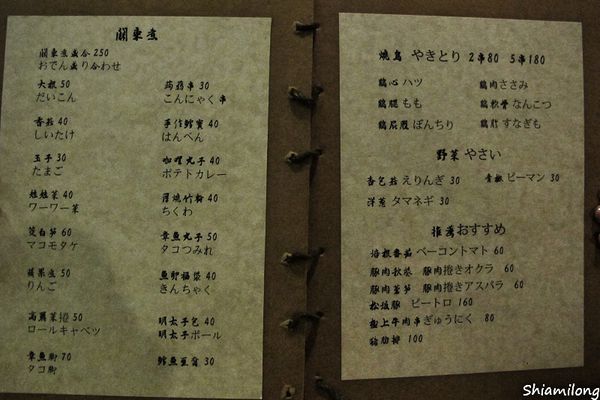 關東煮
關東煮盛合 250
おでん盛り合わせ
大根 50
だいこん
香菇 40
しいたけ
玉子 30
たまご
娃娃菜 40
ワーワー菜
筊白筍 60
マコモタケ
蘋果煮 50
りんご
高麗菜捲 50
ロールキャベツ
章魚腳 70
タコ脚
蒟蒻串 30
こんにゃく串
手作鱈寶 40
はんぺん
咖哩丸子 40
ポテトカレー
厚燒竹輪 40
ちくわ
章魚丸子 50
タコつみれ
魚卵福袋 40
きんちゃく
明太子包 40
明太子ボール
鱈魚豆腐 30
燒鳥 やきとり 2串80 5串180
鷄心 ハツ 鷄肉ささみ
鷄腿 もも 鷄軟骨 なんこつ
鷄屁股 ぼんちり 鷄胗 すなぎも
野菜 やさい
杏包菇 えりんぎ 30 青椒 ピーマン 30
洋蔥 タマネギ 30
推薦おすすめ
培根番茄 ベーコントマト 60
豚肉秋葵 豚肉捲きオクラ 60
豚肉蘆筍 豚肉捲きアスパラ 60
松坂豚 ピートロ 160
板上牛肉串ぎゅうにく 80
豬肋排 100
Shiamilong